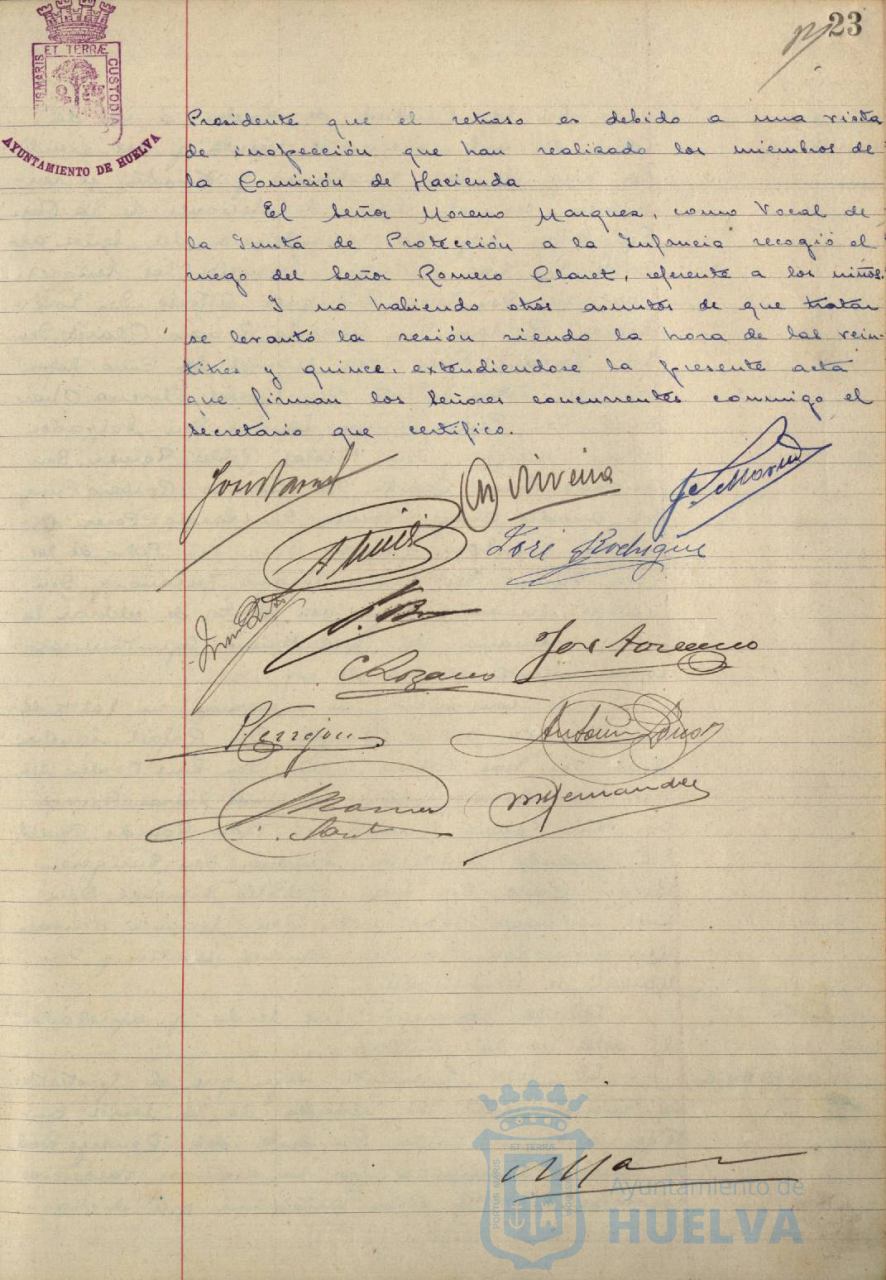 23
ET TERRÆ
CUSTODIA
AYUNTAMIENTO DE HUELVA
Presidente que el retraso es debido a una visita
de inspección que han realizado los miembros de
la Comisión de Hacienda
El Señor Moreno Marquez, como Vocal de
la Junta de Protección a la Infancia recogió el
ruego del Señor Romero Claret, referente a los niños.
I no habiendo otros asuntos de que tratar
se levantó la sesión siendo la hora de las vein-
titres y quince, extendiendose la presente acta
que firman los Señores concurrentes conmigo el
Secretario que certifico.
José Rodríguez
C Lozano
Antonio
Hernandez
ET TERRA
PORTUS MARIS
CUSTODIA
Ayuntamiento de
HUELVA